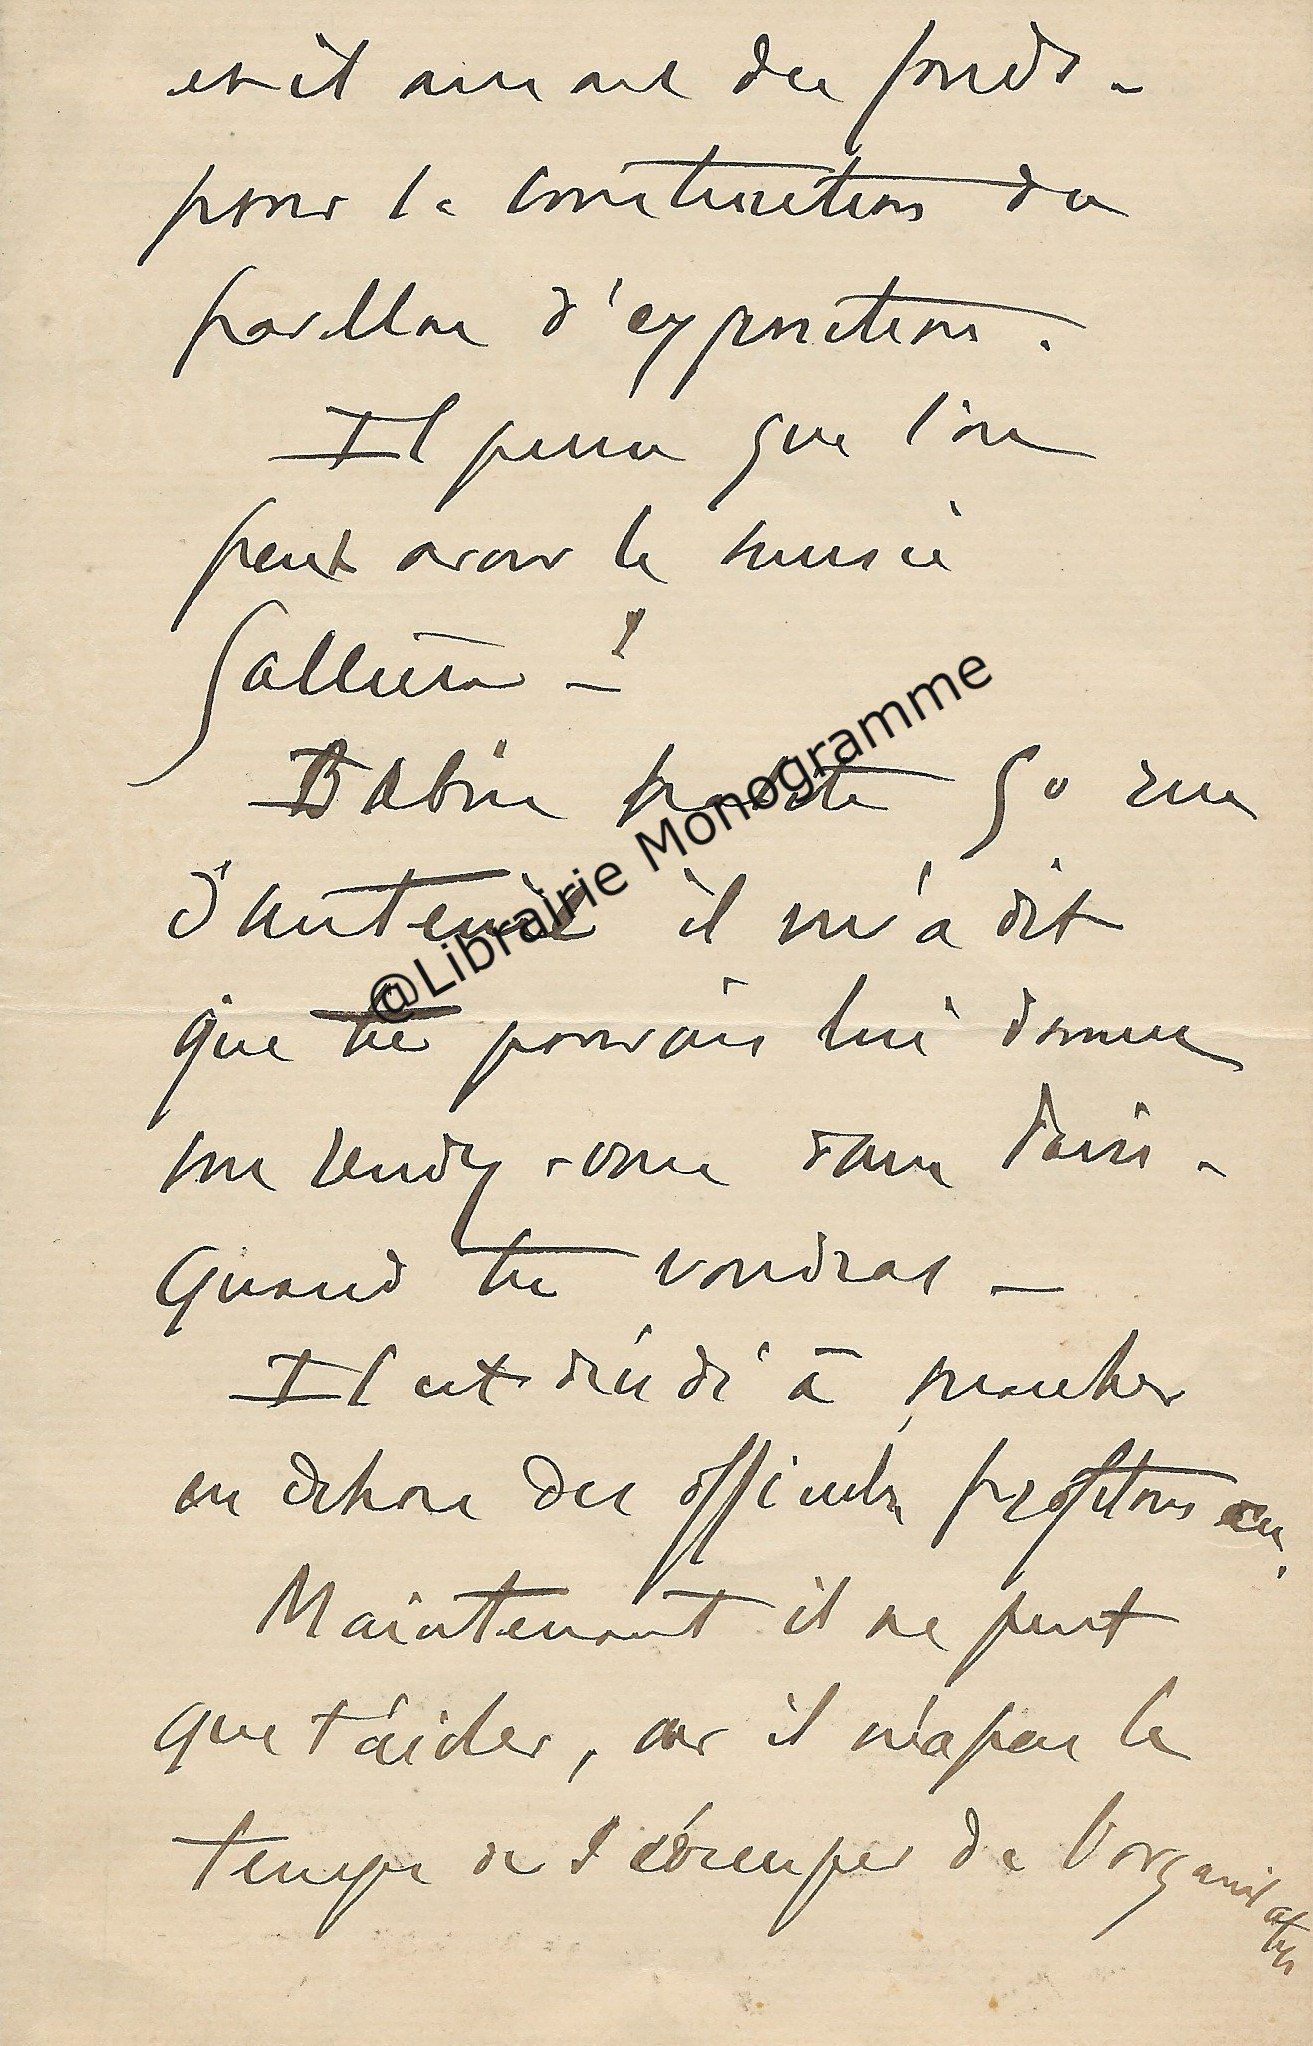 et il aura des fonds -
pour la construction du
pavillon d'exposition.
Il pense que l'on
peut avoir le musée
Galliera - ?
Babin habite 50 rue
d'auteuil il m'a dit
que tu pouvais lui donner
un rendez-vous dans Paris -
Quand tu voudras -
Il est décidé à marcher
en dehors des officiels, profitons en.
Maintenant il ne peut
que t'aider, car il n'a pas le
temps de s'occuper de l'organisation
@Librairie Monogramme